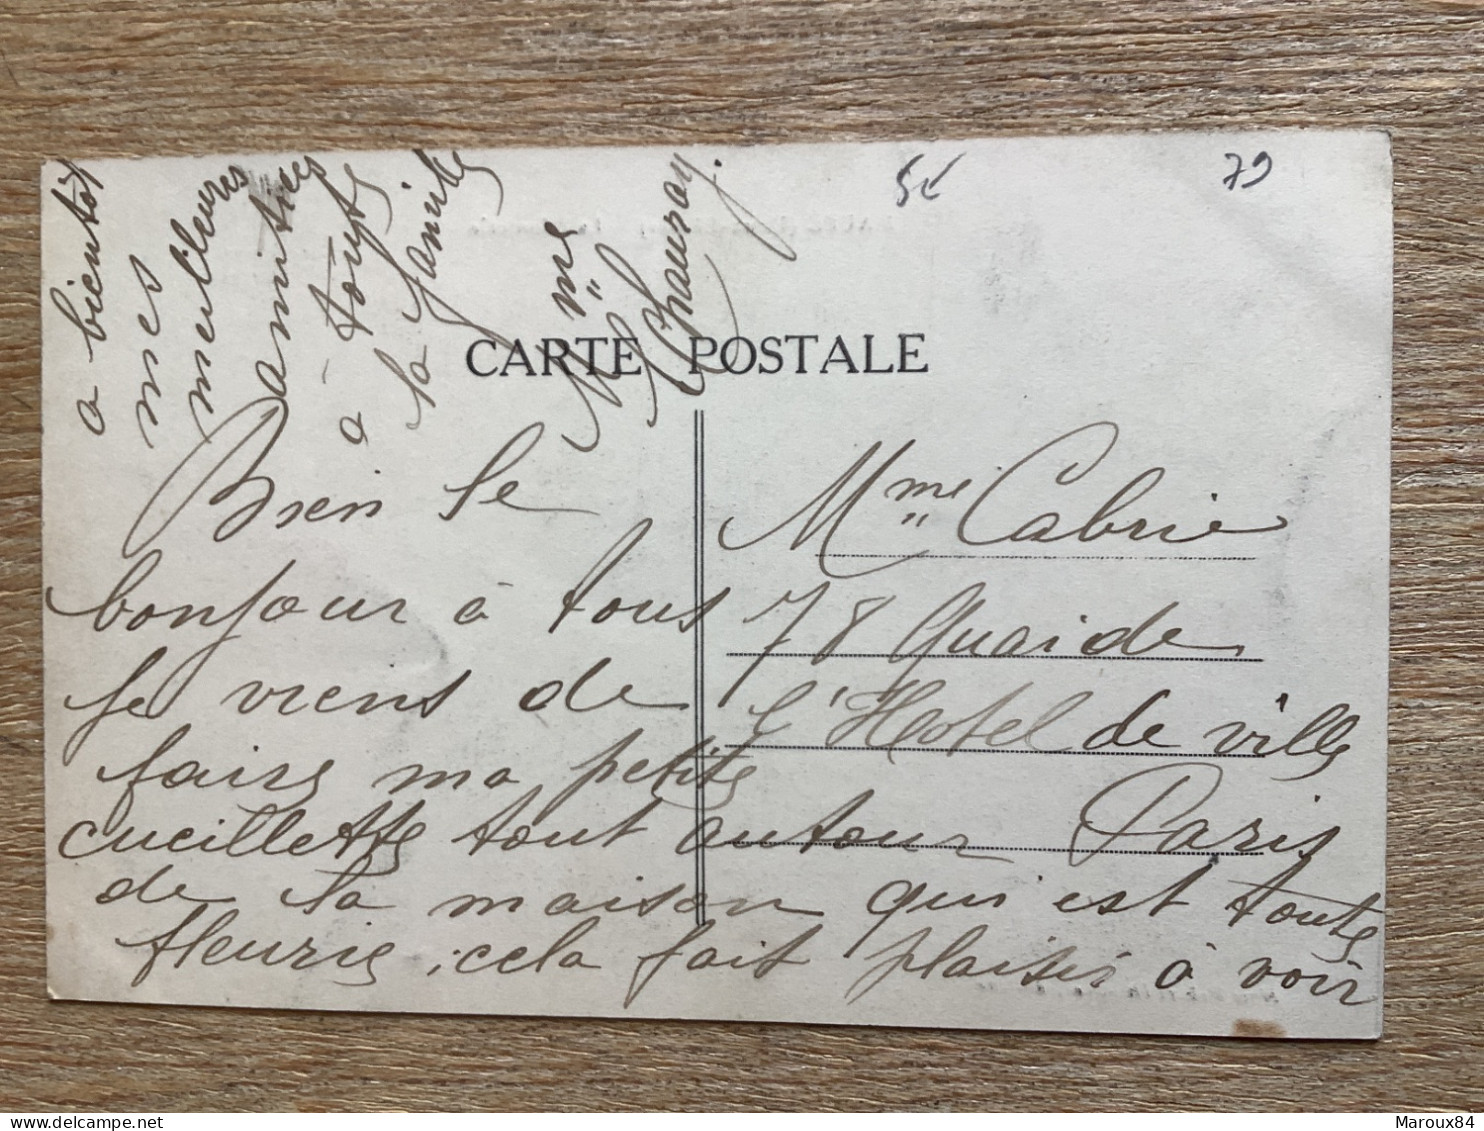 5€
79
CARTE POSTALE
Bien le
bonjour à tous
je viens de
faire ma petite
cueillette tout autour
de la maison qui est toute
fleurie, cela fait plaisir à voir
a bientôt
mes
meilleures
amitiés
à toute
la famille
Mme
Chauray.
Mme Cabrie
78 Quai de
l'Hotel de ville
Paris
Maroux84